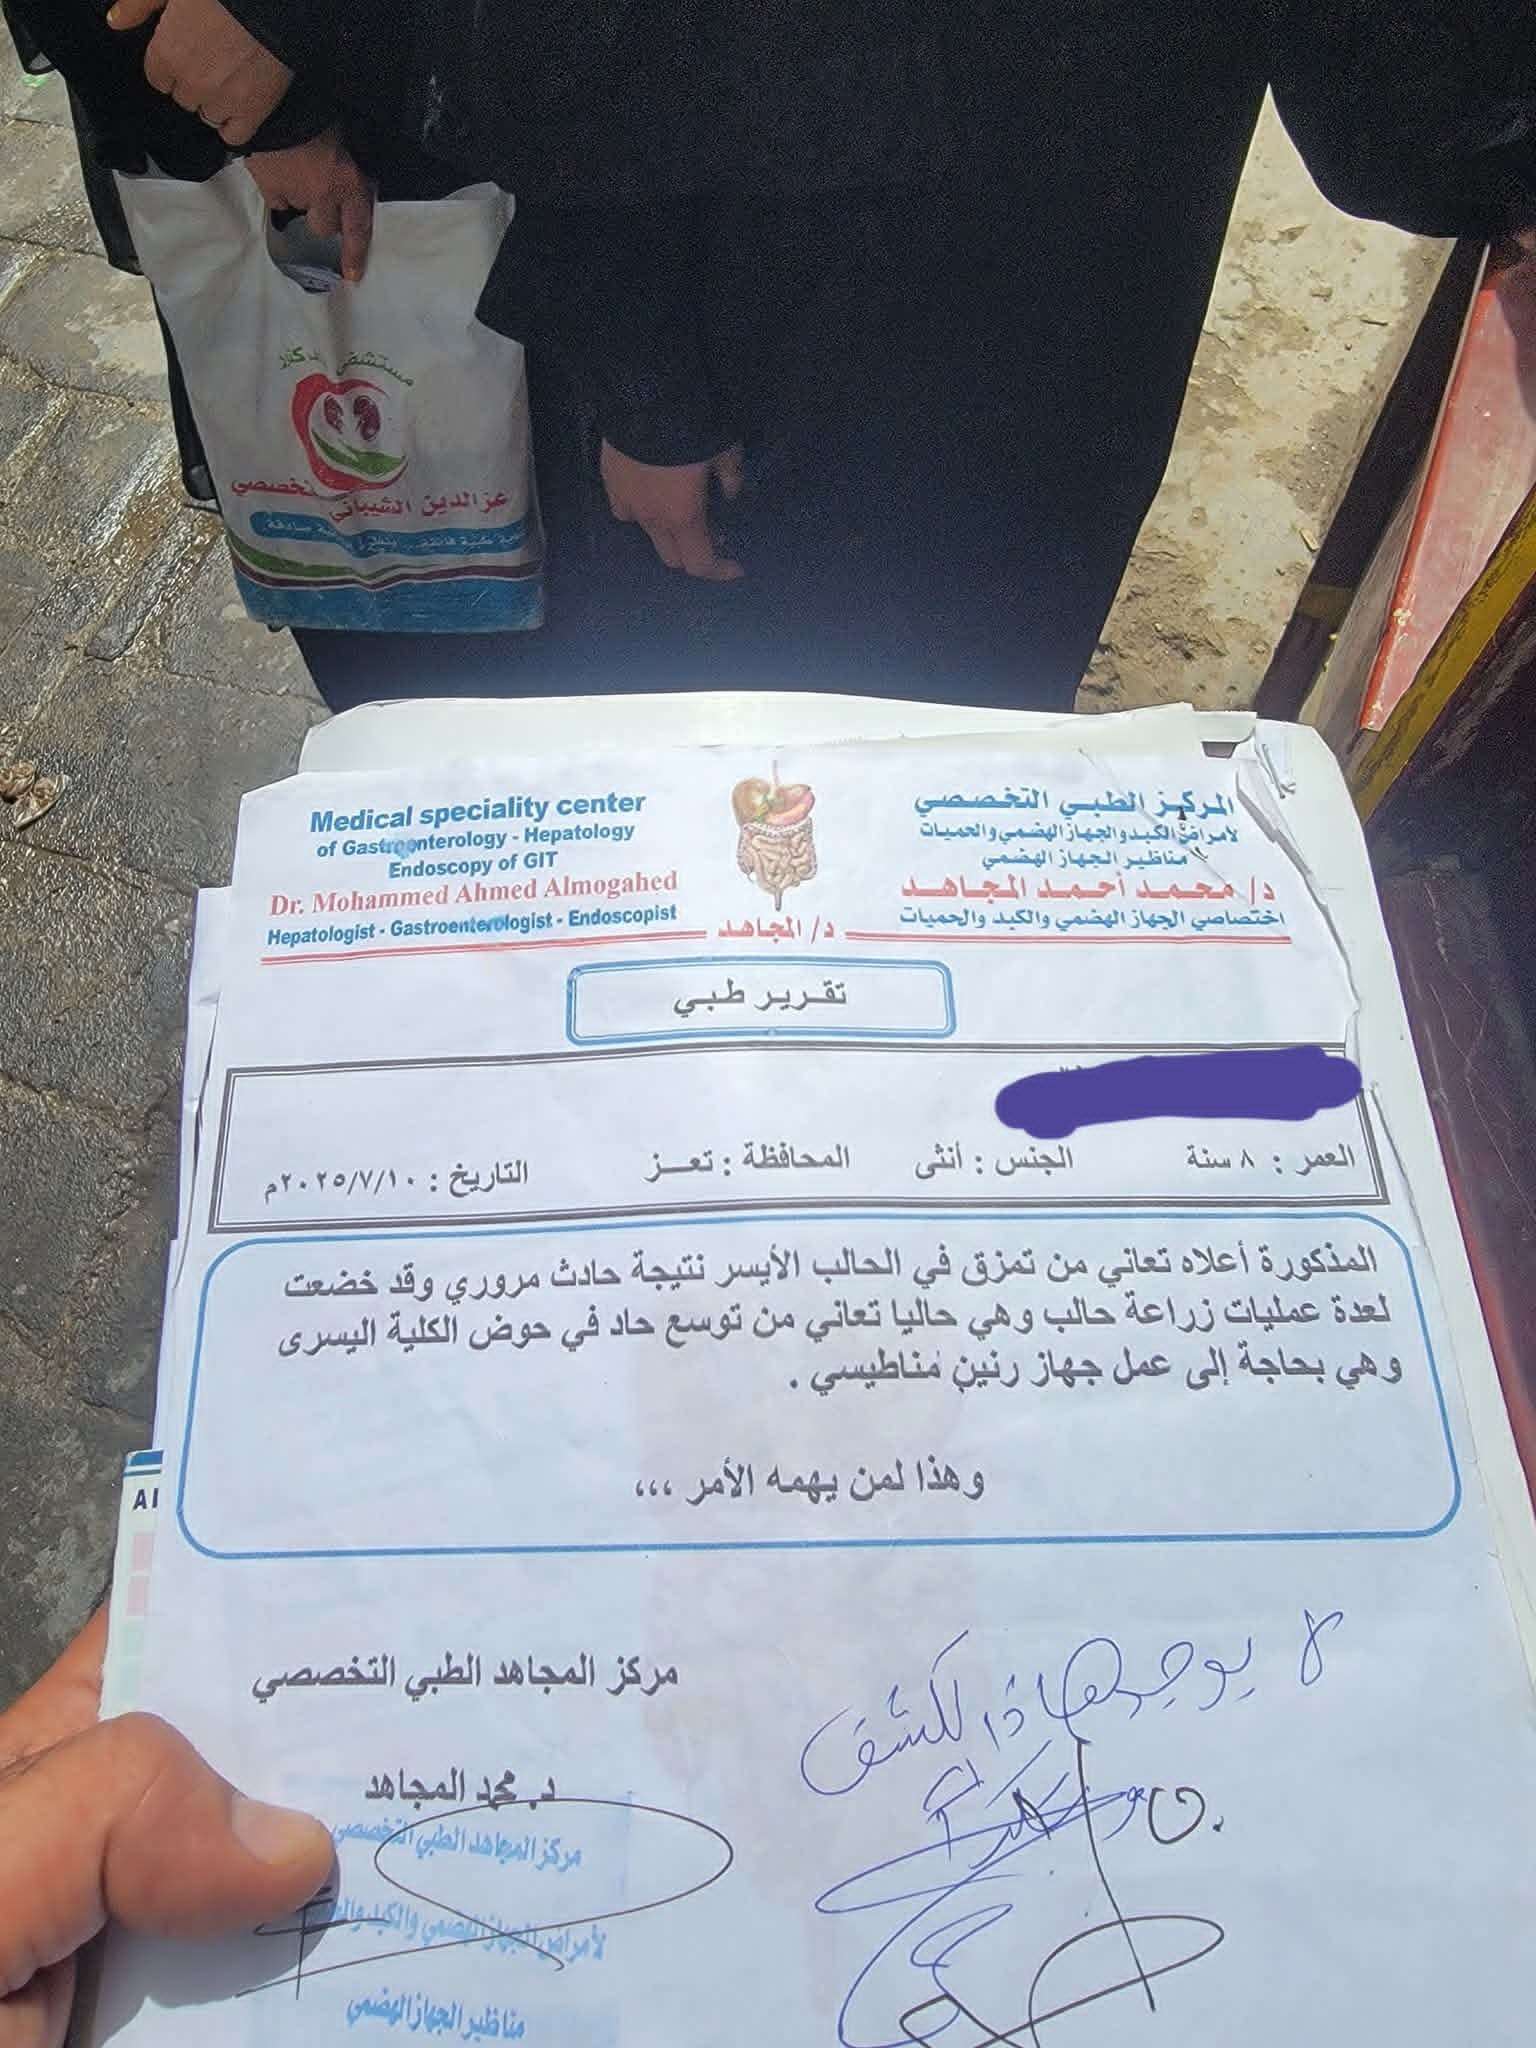 مستشفى
عز الدين الشيباني التخصصي
Medical speciality center
of Gastroenterology - Hepatology
Endoscopy of GIT
Dr. Mohammed Ahmed Almogahed
Hepatologist - Gastroenterologist - Endoscopist
المركز الطبي التخصصي
لأمراض الكبد والجهاز الهضمي والحميات
مناظير الجهاز الهضمي
د/ محمد أحمد المجاهد
اختصاصي الجهاز الهضمي والكبد والحميات
د/ المجاهد
تقرير طبي
العمر : ٨ سنة الجنس : أنثى المحافظة : تعز التاريخ : ٢٠٢٥/٧/١٠م
المذكورة أعلاه تعاني من تمزق في الحالب الأيسر نتيجة حادث مروري وقد خضعت
لعدة عمليات زراعة حالب وهي حاليا تعاني من توسع حاد في حوض الكلية اليسرى
وهي بحاجة إلى عمل جهاز رنين مناطيسي .
وهذا لمن يهمه الأمر ،،،
لا يوجد هاذا لكشف
مركز المجاهد الطبي التخصصي
د. محمد المجاهد
مركز المجاهد الطبي التخصصي
لأمراض الجهاز الهضمي والكبد
مناظير الجهاز الهضمي
AI